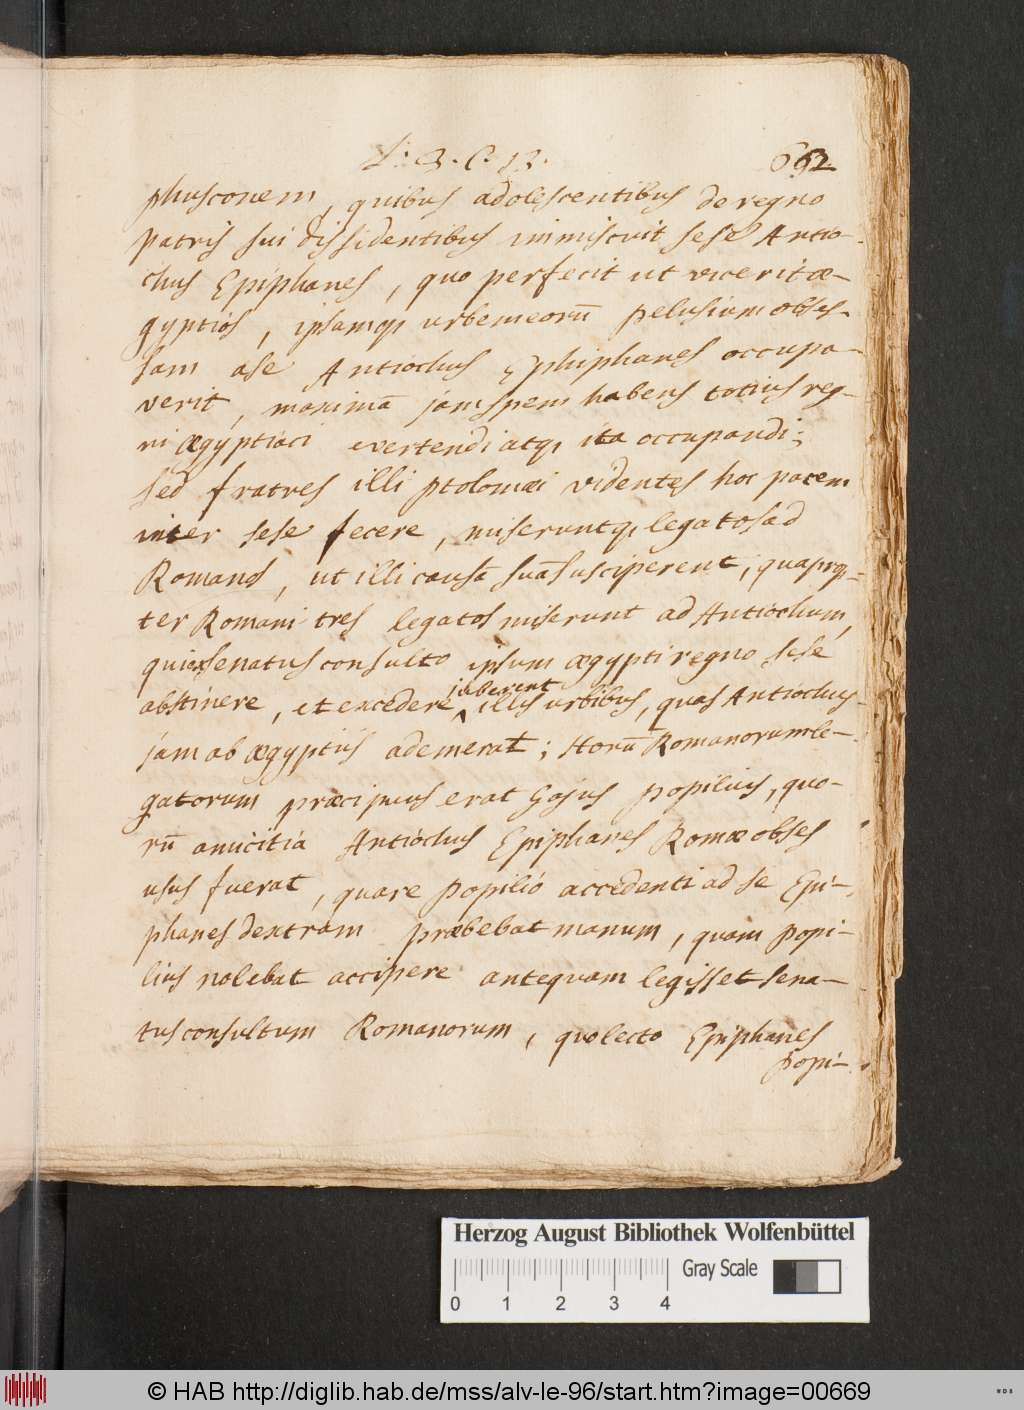 L: 3. C. 13. 662
phusconem, quibus adolescentibus de regno
patris sui dissidentibus immiscuit sese Antio-
chus Epiphanes, quo perfecit ut vicerit æ-
gyptios, ipsamq; urbem eorū pelusium obses-
sam a se Antiochus Ephiphanes occupa-
verit, maximā jam spem habens totius reg-
ni ægyptiaci evertendi atq; ita occupandi;
sed fratres illi ptolomæi videntes hoc pacem
inter sese fecere, miseruntq; legatos ad
Romanos, ut illi causā suā susciperent, quaprop-
ter Romani tres legatos miserunt ad Antiochum,
qui ex senatus consulto ipsum ægypti regno sese
juberent
abstinere, et excedere ^ illis urbibus, quas Antiochus
jam ab ægyptiis ademerat; Horū Romanorum le-
gatorum præcipuus erat Gajus popilius, quo-
rū amicitiâ Antiochus Epiphanes Romæ obses
usus fuerat, quare popilio accedenti ad se Epi-
phanes dextram præbebat manum, quam popi-
lius nolebat accipere antequam legisset sena-
tusconsultum Romanorum, quo lecto Epiphanes
popi-
Herzog August Bibliothek Wolfenbüttel
Gray Scale
0 1 2 3 4
© HAB http://diglib.hab.de/mss/alv-le-96/start.htm?image=00669